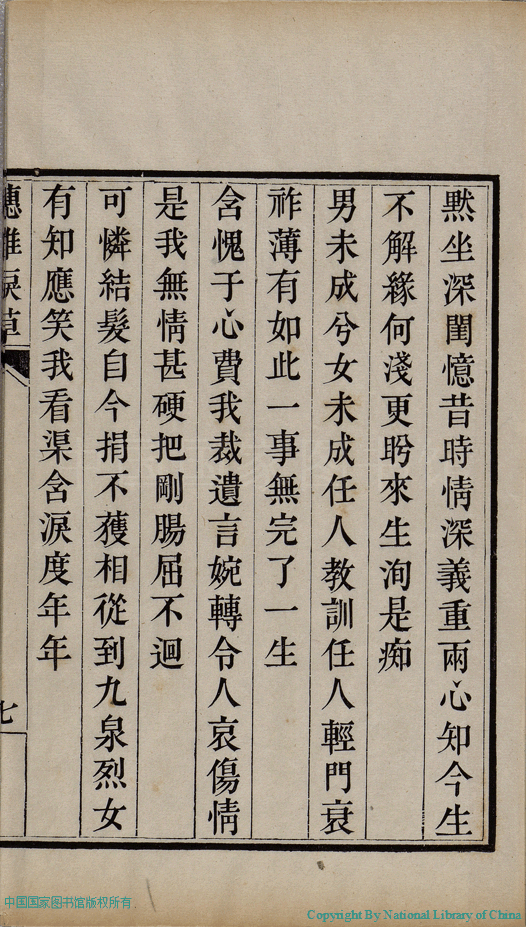 默坐深閨憶昔時情深義重兩心知今生
不解緣何淺更盻來生洵是痴
男未成兮女未成任人教訓任人輕門衰
祚薄有如此一事無完了一生
含愧于心費我裁遺言婉轉令人哀傷情
是我無情甚硬把剛腸屈不迴
可憐結髮自今捐不獲相從到九泉烈女
有知應笑我看渠含淚度年年
七
中国国家图书馆版权所有
Copyright By National Library of China